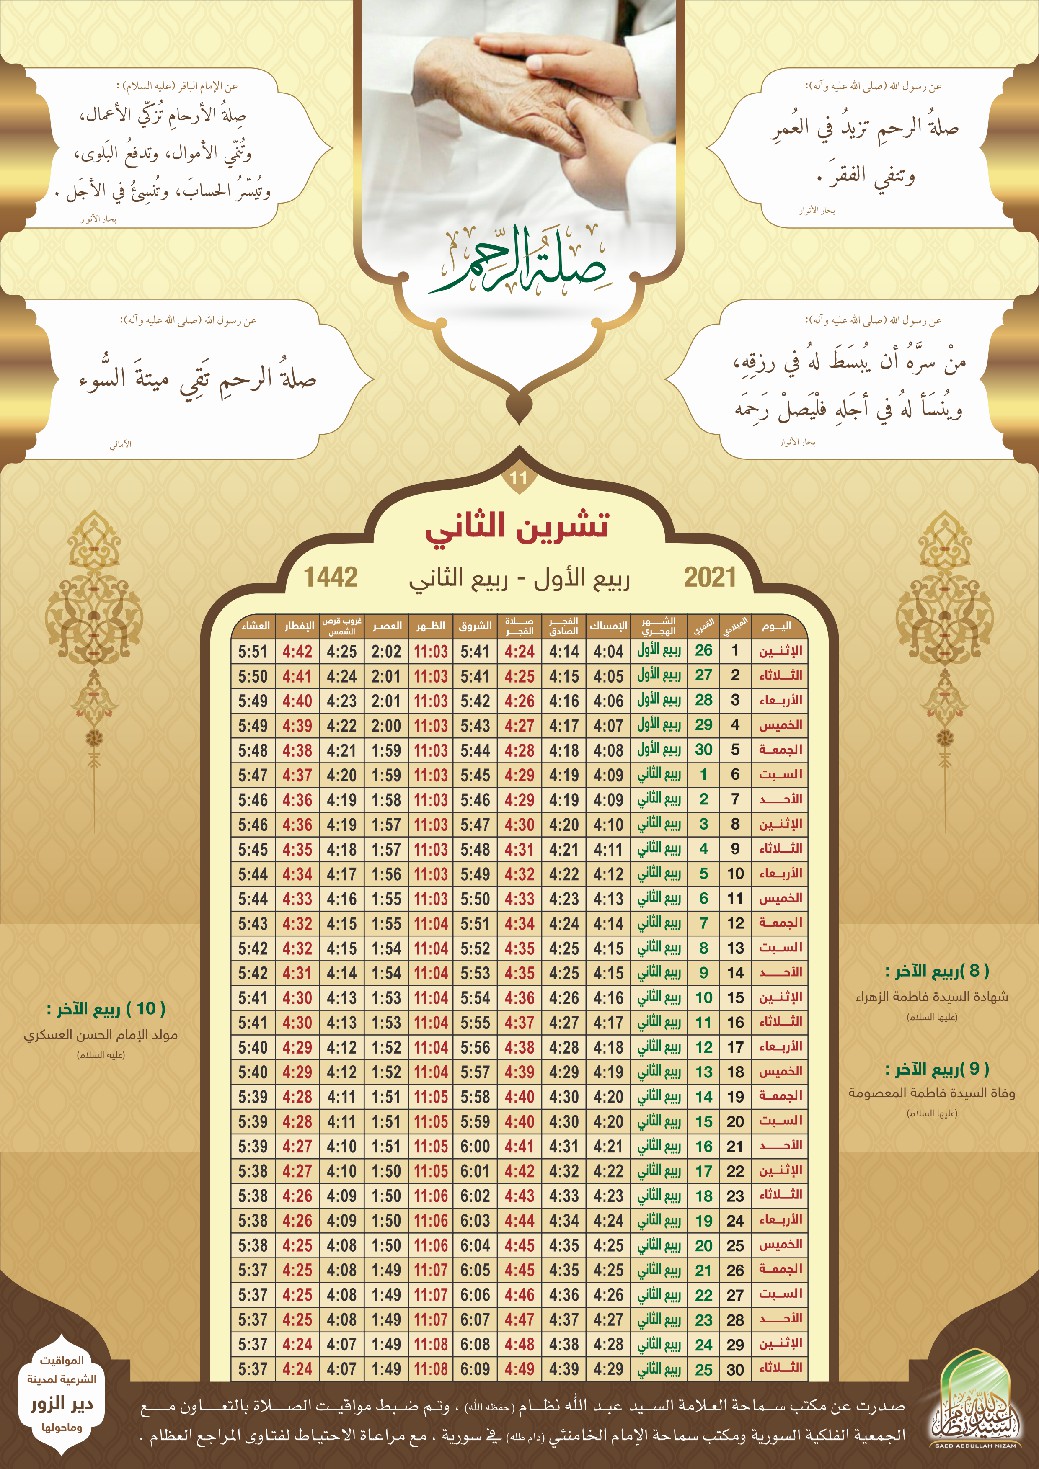 عن رسول الله (صلى الله عليه وآله):
صلةُ الرحمِ تزيدُ في العُمرِ
وتنفي الفقرَ .
بحار الأنوار
عن الإمام الباقر (عليه السلام) :
صِلةُ الأرحامِ تُزكّي الأعمال،
وتُنمّي الأموال، وتدفعُ البَلوى،
وتُيسّرُ الحسابَ، وتُنسِئُ في الأجَل .
بحار الأنوار
صلة الرحم
عن رسول الله (صلى الله عليه وآله):
منْ سرَّهُ أن يُبسَطَ لهُ في رزقِهِ،
ويُنسَأ لهُ في أجَلهِ فلْيَصلْ رَحِمَه
بحار الأنوار
عن رسول الله (صلى الله عليه وآله):
صلةُ الرحمِ تَقِي ميتةَ السُّوء
الأمالي
11
تشرين الثاني
2021 ربيع الأول - ربيع الثاني 1442
اليوم الميلادي القمري الشهر الهجري الإمساك الفجر الصادق صلاة الفجر الشروق الظهر العصر غروب قرص الشمس الإفطار العشاء
الإثنين 1 26 ربيع الأول 4:04 4:14 4:24 5:41 11:03 2:02 4:25 4:42 5:51
الثلاثاء 2 27 ربيع الأول 4:05 4:15 4:25 5:41 11:03 2:01 4:24 4:41 5:50
الأربعاء 3 28 ربيع الأول 4:06 4:16 4:26 5:42 11:03 2:01 4:23 4:40 5:49
الخميس 4 29 ربيع الأول 4:07 4:17 4:27 5:43 11:03 2:00 4:22 4:39 5:49
الجمعة 5 30 ربيع الأول 4:08 4:18 4:28 5:44 11:03 1:59 4:21 4:38 5:48
السبت 6 1 ربيع الثاني 4:09 4:19 4:29 5:45 11:03 1:59 4:20 4:37 5:47
الأحد 7 2 ربيع الثاني 4:09 4:19 4:29 5:46 11:03 1:58 4:19 4:36 5:46
الإثنين 8 3 ربيع الثاني 4:10 4:20 4:30 5:47 11:03 1:57 4:19 4:36 5:46
الثلاثاء 9 4 ربيع الثاني 4:11 4:21 4:31 5:48 11:03 1:57 4:18 4:35 5:45
الأربعاء 10 5 ربيع الثاني 4:12 4:22 4:32 5:49 11:03 1:56 4:17 4:34 5:44
الخميس 11 6 ربيع الثاني 4:13 4:23 4:33 5:50 11:03 1:55 4:16 4:33 5:44
الجمعة 12 7 ربيع الثاني 4:14 4:24 4:34 5:51 11:04 1:55 4:15 4:32 5:43
السبت 13 8 ربيع الثاني 4:15 4:25 4:35 5:52 11:04 1:54 4:15 4:32 5:42
الأحد 14 9 ربيع الثاني 4:15 4:25 4:35 5:53 11:04 1:54 4:14 4:31 5:42
الإثنين 15 10 ربيع الثاني 4:16 4:26 4:36 5:54 11:04 1:53 4:13 4:30 5:41
الثلاثاء 16 11 ربيع الثاني 4:17 4:27 4:37 5:55 11:04 1:53 4:13 4:30 5:41
الأربعاء 17 12 ربيع الثاني 4:18 4:28 4:38 5:56 11:04 1:52 4:12 4:29 5:40
الخميس 18 13 ربيع الثاني 4:19 4:29 4:39 5:57 11:04 1:52 4:12 4:29 5:40
الجمعة 19 14 ربيع الثاني 4:20 4:30 4:40 5:58 11:05 1:51 4:11 4:28 5:39
السبت 20 15 ربيع الثاني 4:20 4:30 4:40 5:59 11:05 1:51 4:11 4:28 5:39
الأحد 21 16 ربيع الثاني 4:21 4:31 4:41 6:00 11:05 1:51 4:10 4:27 5:39
الإثنين 22 17 ربيع الثاني 4:22 4:32 4:42 6:01 11:05 1:50 4:10 4:27 5:38
الثلاثاء 23 18 ربيع الثاني 4:23 4:33 4:43 6:02 11:06 1:50 4:09 4:26 5:38
الأربعاء 24 19 ربيع الثاني 4:24 4:34 4:44 6:03 11:06 1:50 4:09 4:26 5:38
الخميس 25 20 ربيع الثاني 4:25 4:35 4:45 6:04 11:06 1:50 4:08 4:25 5:38
الجمعة 26 21 ربيع الثاني 4:25 4:35 4:45 6:05 11:07 1:49 4:08 4:25 5:37
السبت 27 22 ربيع الثاني 4:26 4:36 4:46 6:06 11:07 1:49 4:08 4:25 5:37
الأحد 28 23 ربيع الثاني 4:27 4:37 4:47 6:07 11:07 1:49 4:08 4:25 5:37
الإثنين 29 24 ربيع الثاني 4:28 4:38 4:48 6:08 11:08 1:49 4:07 4:24 5:37
الثلاثاء 30 25 ربيع الثاني 4:29 4:39 4:49 6:09 11:08 1:49 4:07 4:24 5:37
( 8 )ربيع الآخر :
شهادة السيدة فاطمة الزهراء
(عليها السلام)
( 9 )ربيع الآخر :
وفاة السيدة فاطمة المعصومة
(عليها السلام)
( 10 ) ربيع الآخر :
مولد الإمام الحسن العسكري
(عليه السلام)
صدرت عن مكتب سماحة العلامة السيد عبد الله نظام (حفظه الله) ، وتم ضبط مواقيت الصلاة بالتعاون مع
الجمعية الفلكية السورية ومكتب سماحة الإمام الخامنئي (دام ظله) في سورية ، مع مراعاة الاحتياط لفتاوى المراجع العظام .
المواقيت
الشرعية لمدينة
دير الزور
وماحولها
SAED ABDULLAH NIZAM